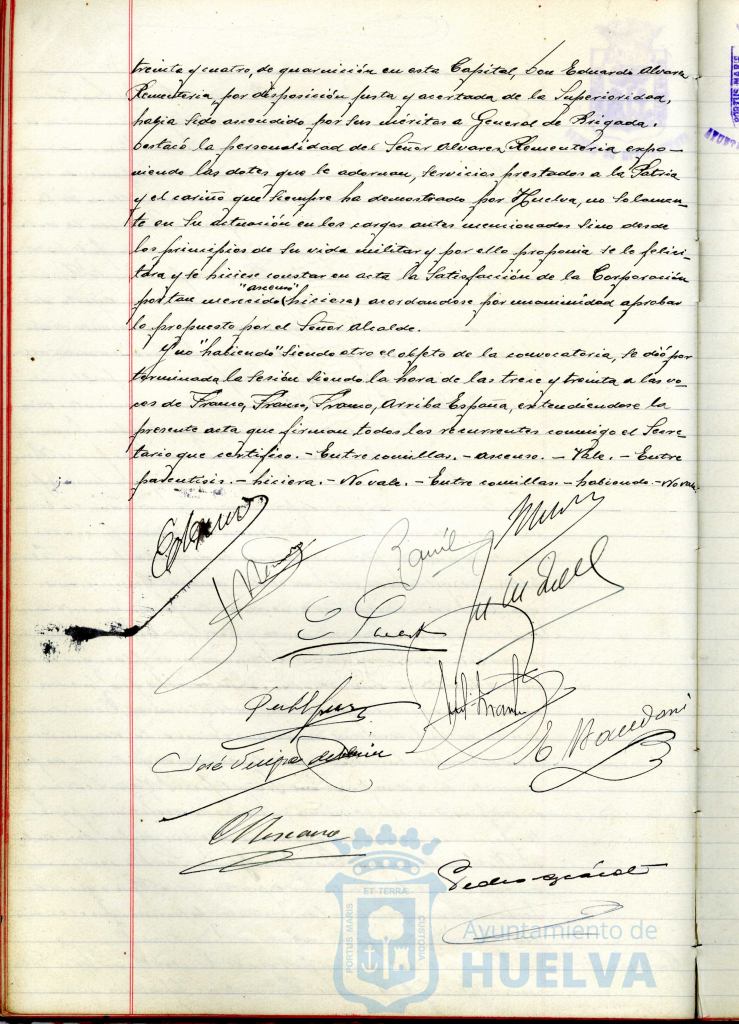 treinta y cuatro, de guarnición en esta Capital, Don Eduardo Alvarez
Rementeria, por disposición justa y acertada de la Superioridad,
habia sido ascendido por sus méritos a General de Brigada.
Destacó la personalidad del Señor Alvarez Rementeria expo-
niendo las dotes que le adornan, servicios prestados a la Patria
y el cariño que siempre ha demostrado por Huelva, no solamen-
te en su actuación en los cargos antes mencionados sino desde
los principios de su vida militar y por ello proponia se le felici-
tara y se hiciese constar en acta la Satisfacción de la Corporación
"ascenso"
por tan merecido (hiciese) acordandose por unanimidad aprobar
lo propuesto por el Señor Alcalde.
Y no "habiendo" siendo otro el objeto de la convocatoria, se dió por
terminada la sesión siendo la hora de las trece y treinta a las vo-
ces de Franco, Franco, Franco, Arriba España, extendiendose la
presente acta que firman todos los recurrentes conmigo el Secre-
tario que certifico. - Entre comillas. - ascenso. - Vale. - Entre
parentisis. - hiciera. - No vale. - Entre comillas. - habiendo. - No vale.
José
Pedro
PORTUS MARIS
ET TERRÆ
CUSTODIA
Ayuntamiento de
HUELVA
PORTUS MARIS